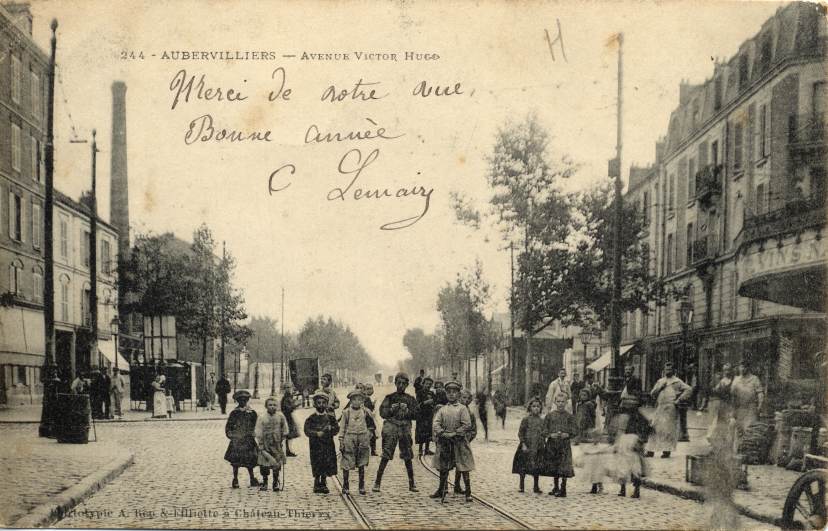 244 - AUBERVILLIERS — AVENUE VICTOR HUGO
H
Merci de votre vue.
Bonne année
C Lemair
VINS
Phototypie A. Rep & Filliette à Château-Thierry